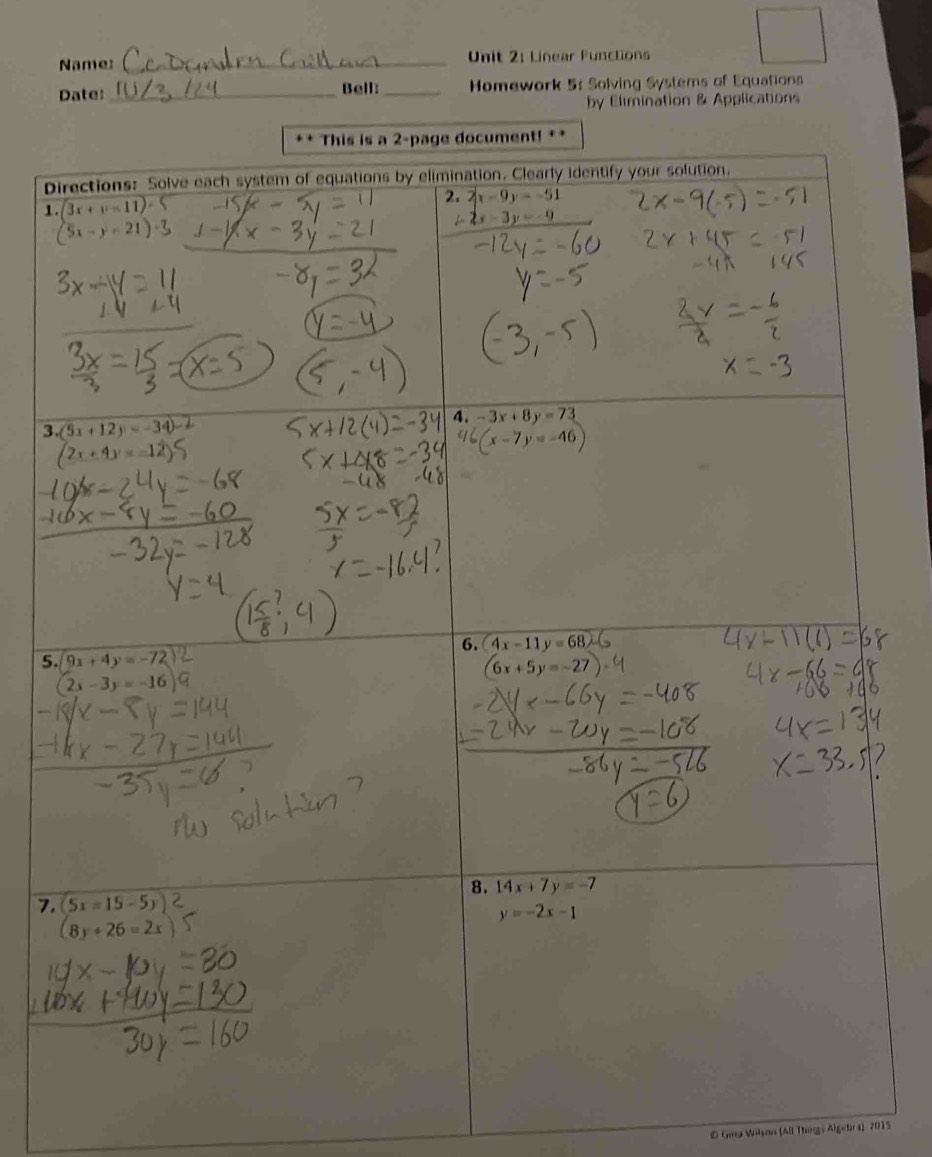 Name:
Unit 2: Linear Functions
Date: 10/3/24
Bell:
Homework 5: Solving Systems of Equations
by Elimination & Applications
** This is a 2-page document! **
Directions: Solve each system of equations by elimination. Clearly identify your solution.
1. (3x + y = 11)-5
(5x - y = 21)-3
-15x - 5y = 11
-15x - 3y = 21
-8y = 32
y = -4
3x - 4 = 11
+4 +4
3x/3 = 15/3 = x = 5
(5, -4)
2. 2x - 9y = -51
-2x - 3y = -9
-12y = -60
y = -5
(-3, -5)
2x - 9(-5) = -51
2x + 45 = -51
-45 +45
2x/2 = -6/2
x = -3
3. (5x + 12y = -34)-2
(2x + 4y = -12)5
-10x - 24y = -68
-10x - 8y = -60
-32y = -128
y = 4
(15/8?, 4)
5x + 12(4) = -34
5x + 48 = -34
-48 -48
5x/5 = -82/5
x = -16.4?
4. -3x + 8y = 73
46(x - 7y = -46)
5. (9x + 4y = -72)2
(2x - 3y = -16)9
-18x - 8y = 144
-18x - 27y = 144
-35y = 0?
no solution?
6. (4x - 11y = 68)-6
(6x + 5y = -27)-4
-24x - 66y = -408
-24x - 20y = -108
-86y = -516
y = 6
4x - 11(6) = 68
4x - 66 = 68
+66 +66
4x = 134
x = 33.5?
7. (5x = 15 - 5y)2
(8y + 26 = 2x)5
10x - 10y = 30
10x + 40y = 130
30y = 160
8. 14x + 7y = -7
y = -2x - 1
© Gina Wilson (All Things Algebra), 2015